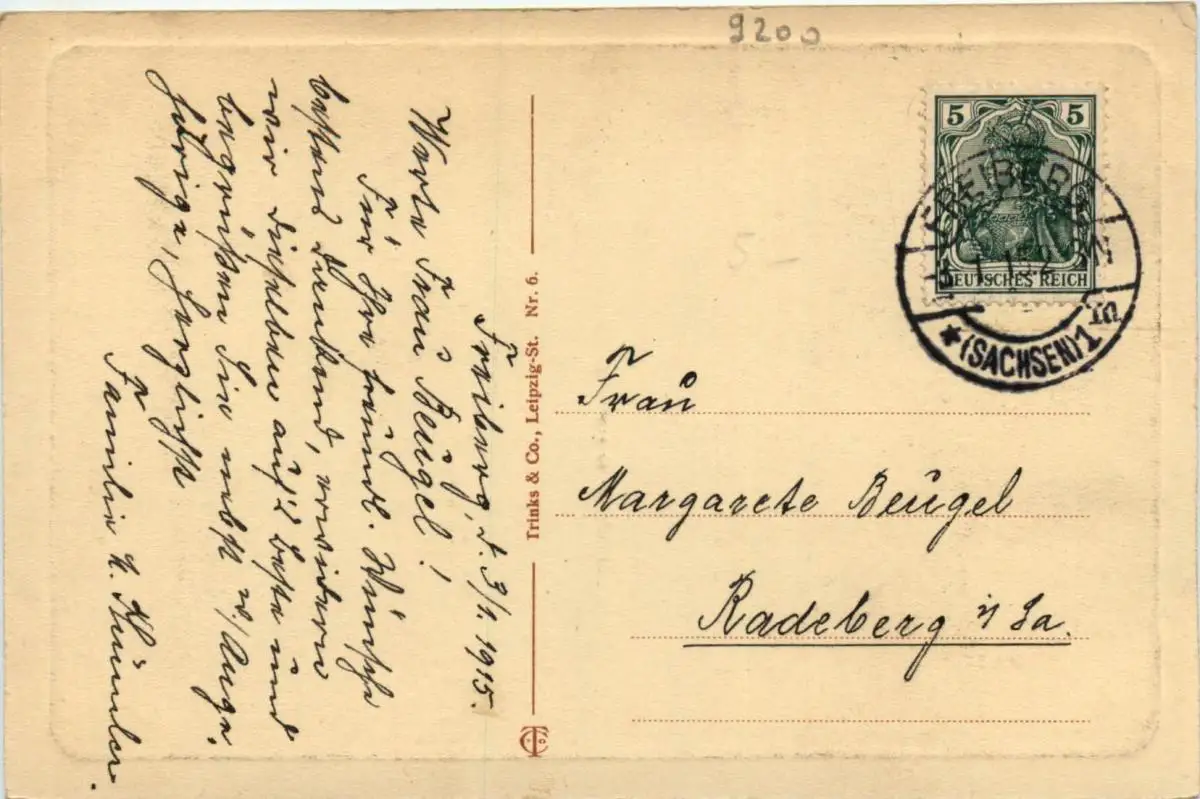 9200
Freiberg, d. 3/1. 1915.
Werte Frau Beugel!
Für Ihre freundl. Wünsche
bestens dankend, erwidern
wir dieselben auf's beste und
begrüßen Sie nebst w/ Ange-
hörige, herzlichst
Familie H.
Trinks & Co., Leipzig-St. Nr. 6.
5 5
DEUTSCHES REICH
FREIBERG
(SACHSEN) 1
5 –
Frau
Margarete Beugel
Radeberg i/ Sa.